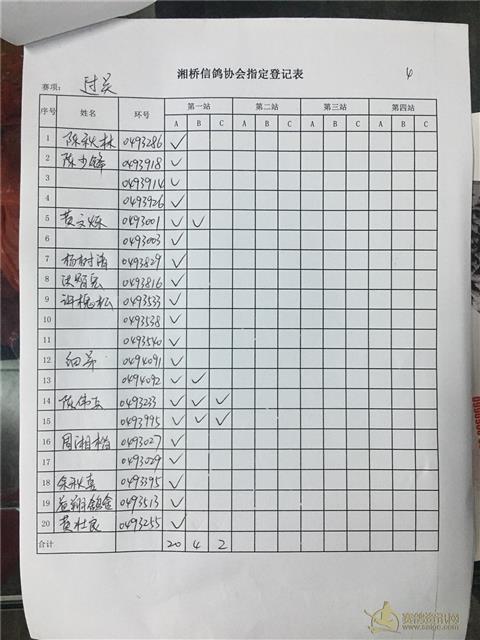 湘桥信鸽协会指定登记表 4
赛项: 过关
序号 姓名 环号 第一站 第二站 第三站 第四站
A B C A B C A B C A B C
1 陈秋林 0493286 ✓
2 陈少锋 0493918 ✓
3 0493914 ✓
4 0493926 ✓
5 黄文烁 0493001 ✓ ✓
6 0493003 ✓
7 杨树涛 0493829 ✓
8 洪 0493816 ✓
9 许槐松 0493533 ✓
10 0493538 ✓
11 0493540 ✓
12 细弟 0494091 ✓
13 0494092 ✓ ✓
14 陈伟 0493233 ✓ ✓ ✓
15 0493995 ✓ ✓ ✓
16 周湘 0493027 ✓
17 0493029 ✓
18 余秋喜 0493395 ✓
19 益翔鸽舍 0493513 ✓
20 黄壮良 0493255 ✓
合计 20 4 2
赛鸽资讯网
www.saige.com